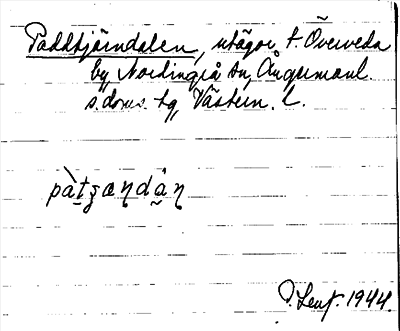 Paddtjärndalen, utägor t. Överveda
by, Nordingrå sn, Ångermanl.
s. doms. tg, Västern. l.
pàtʒændån
P. Lenf. 1944.